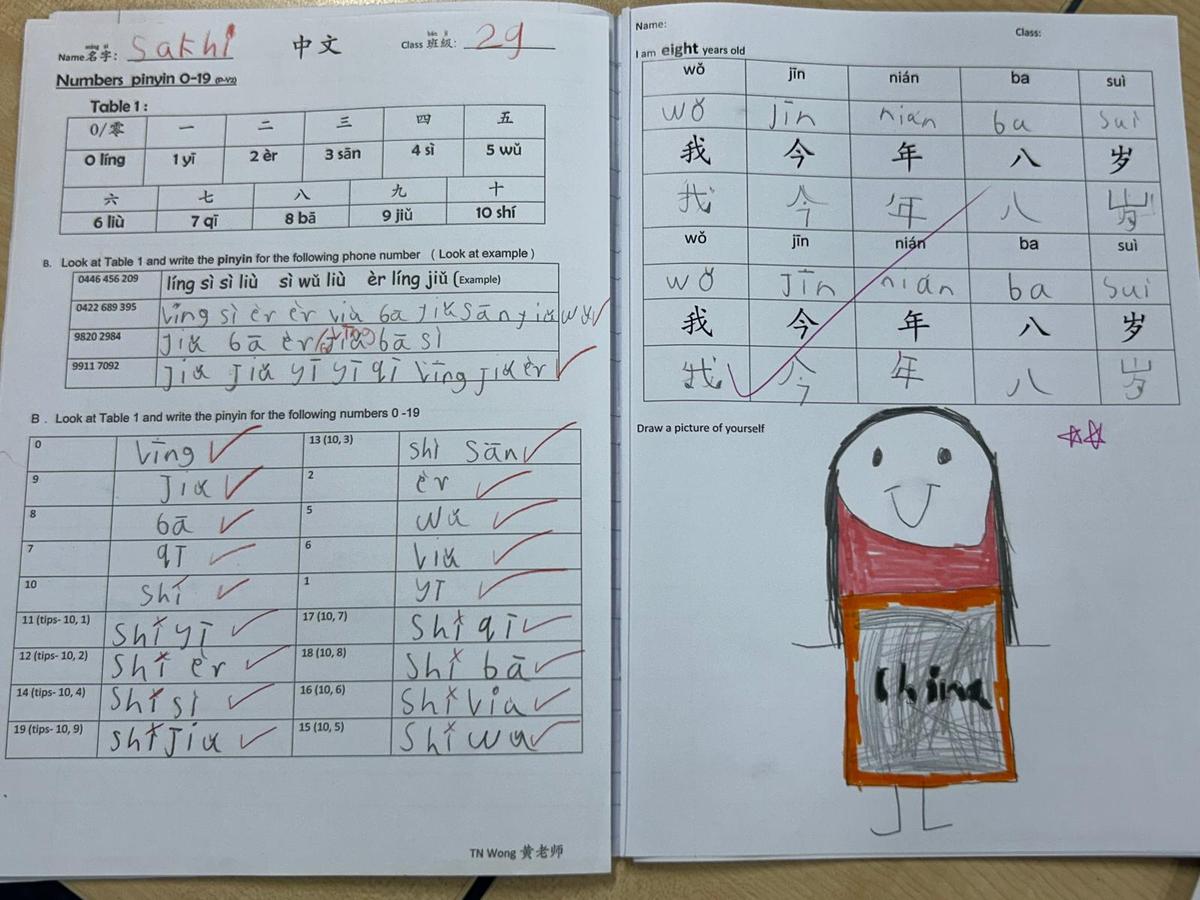 míng zì
bān jí
Name名字: Sakhi 中文 Class 班級: 2g
Numbers pinyin 0-19 (P-Y2)
Table 1 :
0/零 一 二 三 四 五
0 líng 1 yī 2 èr 3 sān 4 sì 5 wǔ
六 七 八 九 十
6 liù 7 qī 8 bā 9 jiǔ 10 shí
B. Look at Table 1 and write the pinyin for the following phone number ( Look at example )
0446 456 209 líng sì sì liù sì wǔ liù èr líng jiǔ (Example)
0422 689 395 líng sì èr èr liù bā jiǔ sān jiǔ wǔ
9820 2984 jiǔ bā èr jiǔ bā sì
9911 7092 jiǔ jiǔ yī yī qī līng jiǔ èr
B . Look at Table 1 and write the pinyin for the following numbers 0 -19
0 līng 13 (10, 3) shì sān
9 jiǔ 2 èr
8 bā 5 wǔ
7 qī 6 liǔ
10 shí 1 yī
11 (tips- 10, 1) shí yī 17 (10, 7) shí qī
12 (tips- 10, 2) shí èr 18 (10, 8) shí bā
14 (tips- 10, 4) shí sì 16 (10, 6) shí liu
19 (tips- 10, 9) shí jiǔ 15 (10, 5) shí wǔ
TN Wong 黄老师
Name: Class:
I am eight years old
wǒ jīn nián ba suì
wǒ jīn nián ba sui
我 今 年 八 岁
我 今 年 八 岁
wǒ jīn nián ba suì
wǒ jīn nián ba sui
我 今 年 八 岁
我 今 年 八 岁
Draw a picture of yourself
China